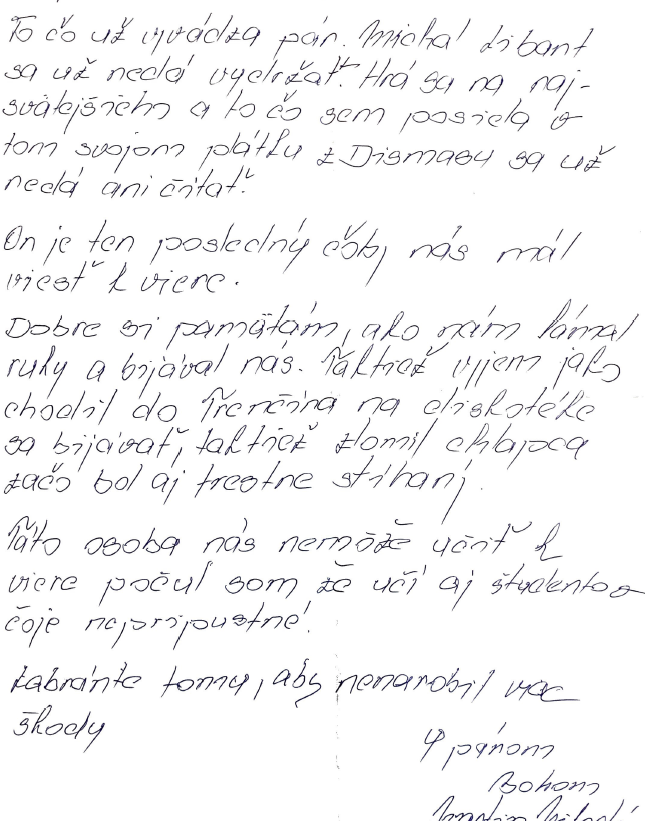 To čo už vyvádza pán. Michal Libant
sa už nedá vydržať. Hrá sa na naj-
svätejšieho a to čo sem posiela v
tom svojom plátku z Dismasu sa už
nedá ani čítať.
On je ten posledný čoby nás mál
viesť k viere.
Dobre si pamätám, ako nám lámal
ruky a bijával nás. Taktiež vyjem jako
chodil do Trenčína na diskotéke
sa bijávať, taktiež zlomil chlapca
začo bol aj trestne stíhaný.
Táto osoba nás nemôže učiť k
viere počul som že učí aj študentov
čoje neprípustné!
zabránte tomu, aby nenarobil viac
škody
S pánom
Bohom